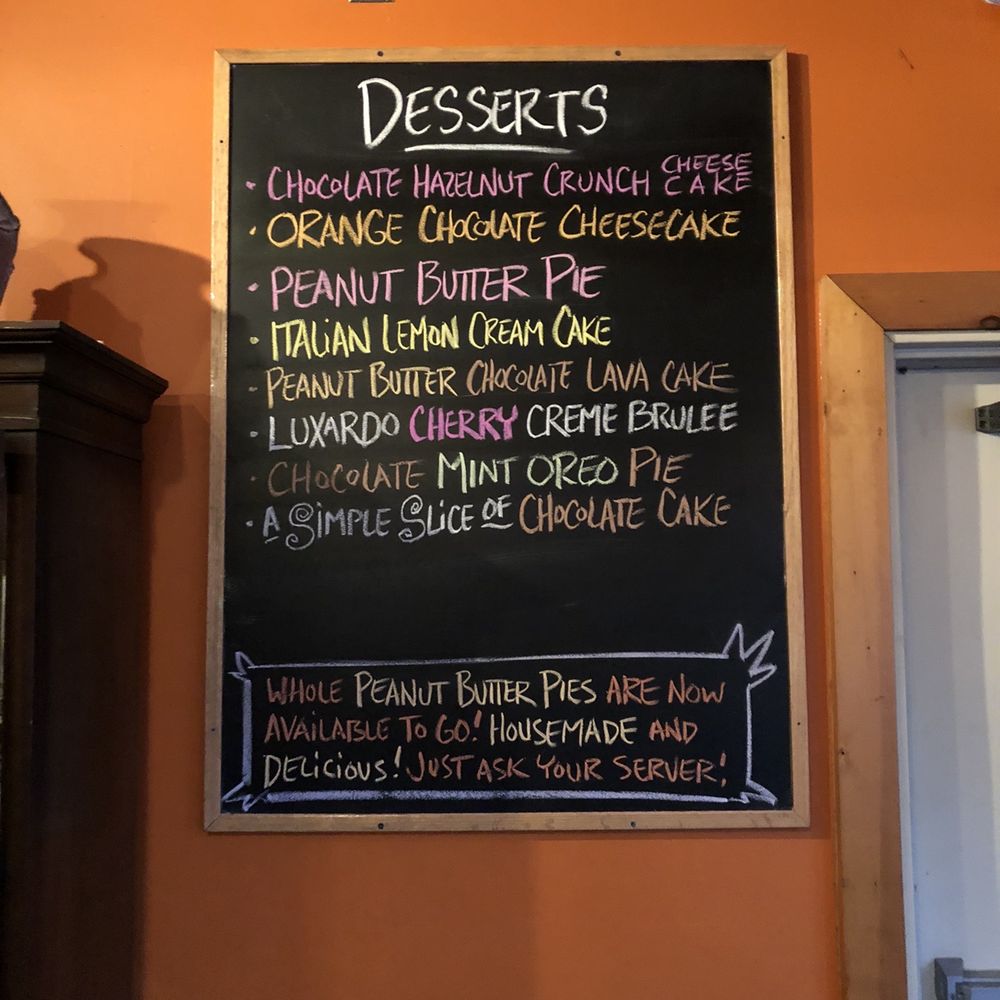 DESSERTS
· CHOCOLATE HAZELNUT CRUNCH CHEESE CAKE
· ORANGE CHOCOLATE CHEESECAKE
· PEANUT BUTTER PIE
· ITALIAN LEMON CREAM CAKE
· PEANUT BUTTER CHOCOLATE LAVA CAKE
· LUXARDO CHERRY CREME BRULEE
· CHOCOLATE MINT OREO PIE
· A SIMPLE SLICE OF CHOCOLATE CAKE
WHOLE PEANUT BUTTER PIES ARE NOW
AVAILABLE TO GO! HOUSEMADE AND
DELICIOUS! JUST ASK YOUR SERVER!